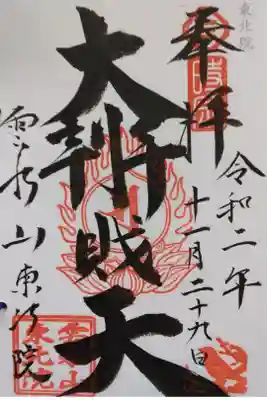 東北院
奉拝
令和二年
十一月二十九日
大辨財天
雲水山東北院
雲水山
東北院